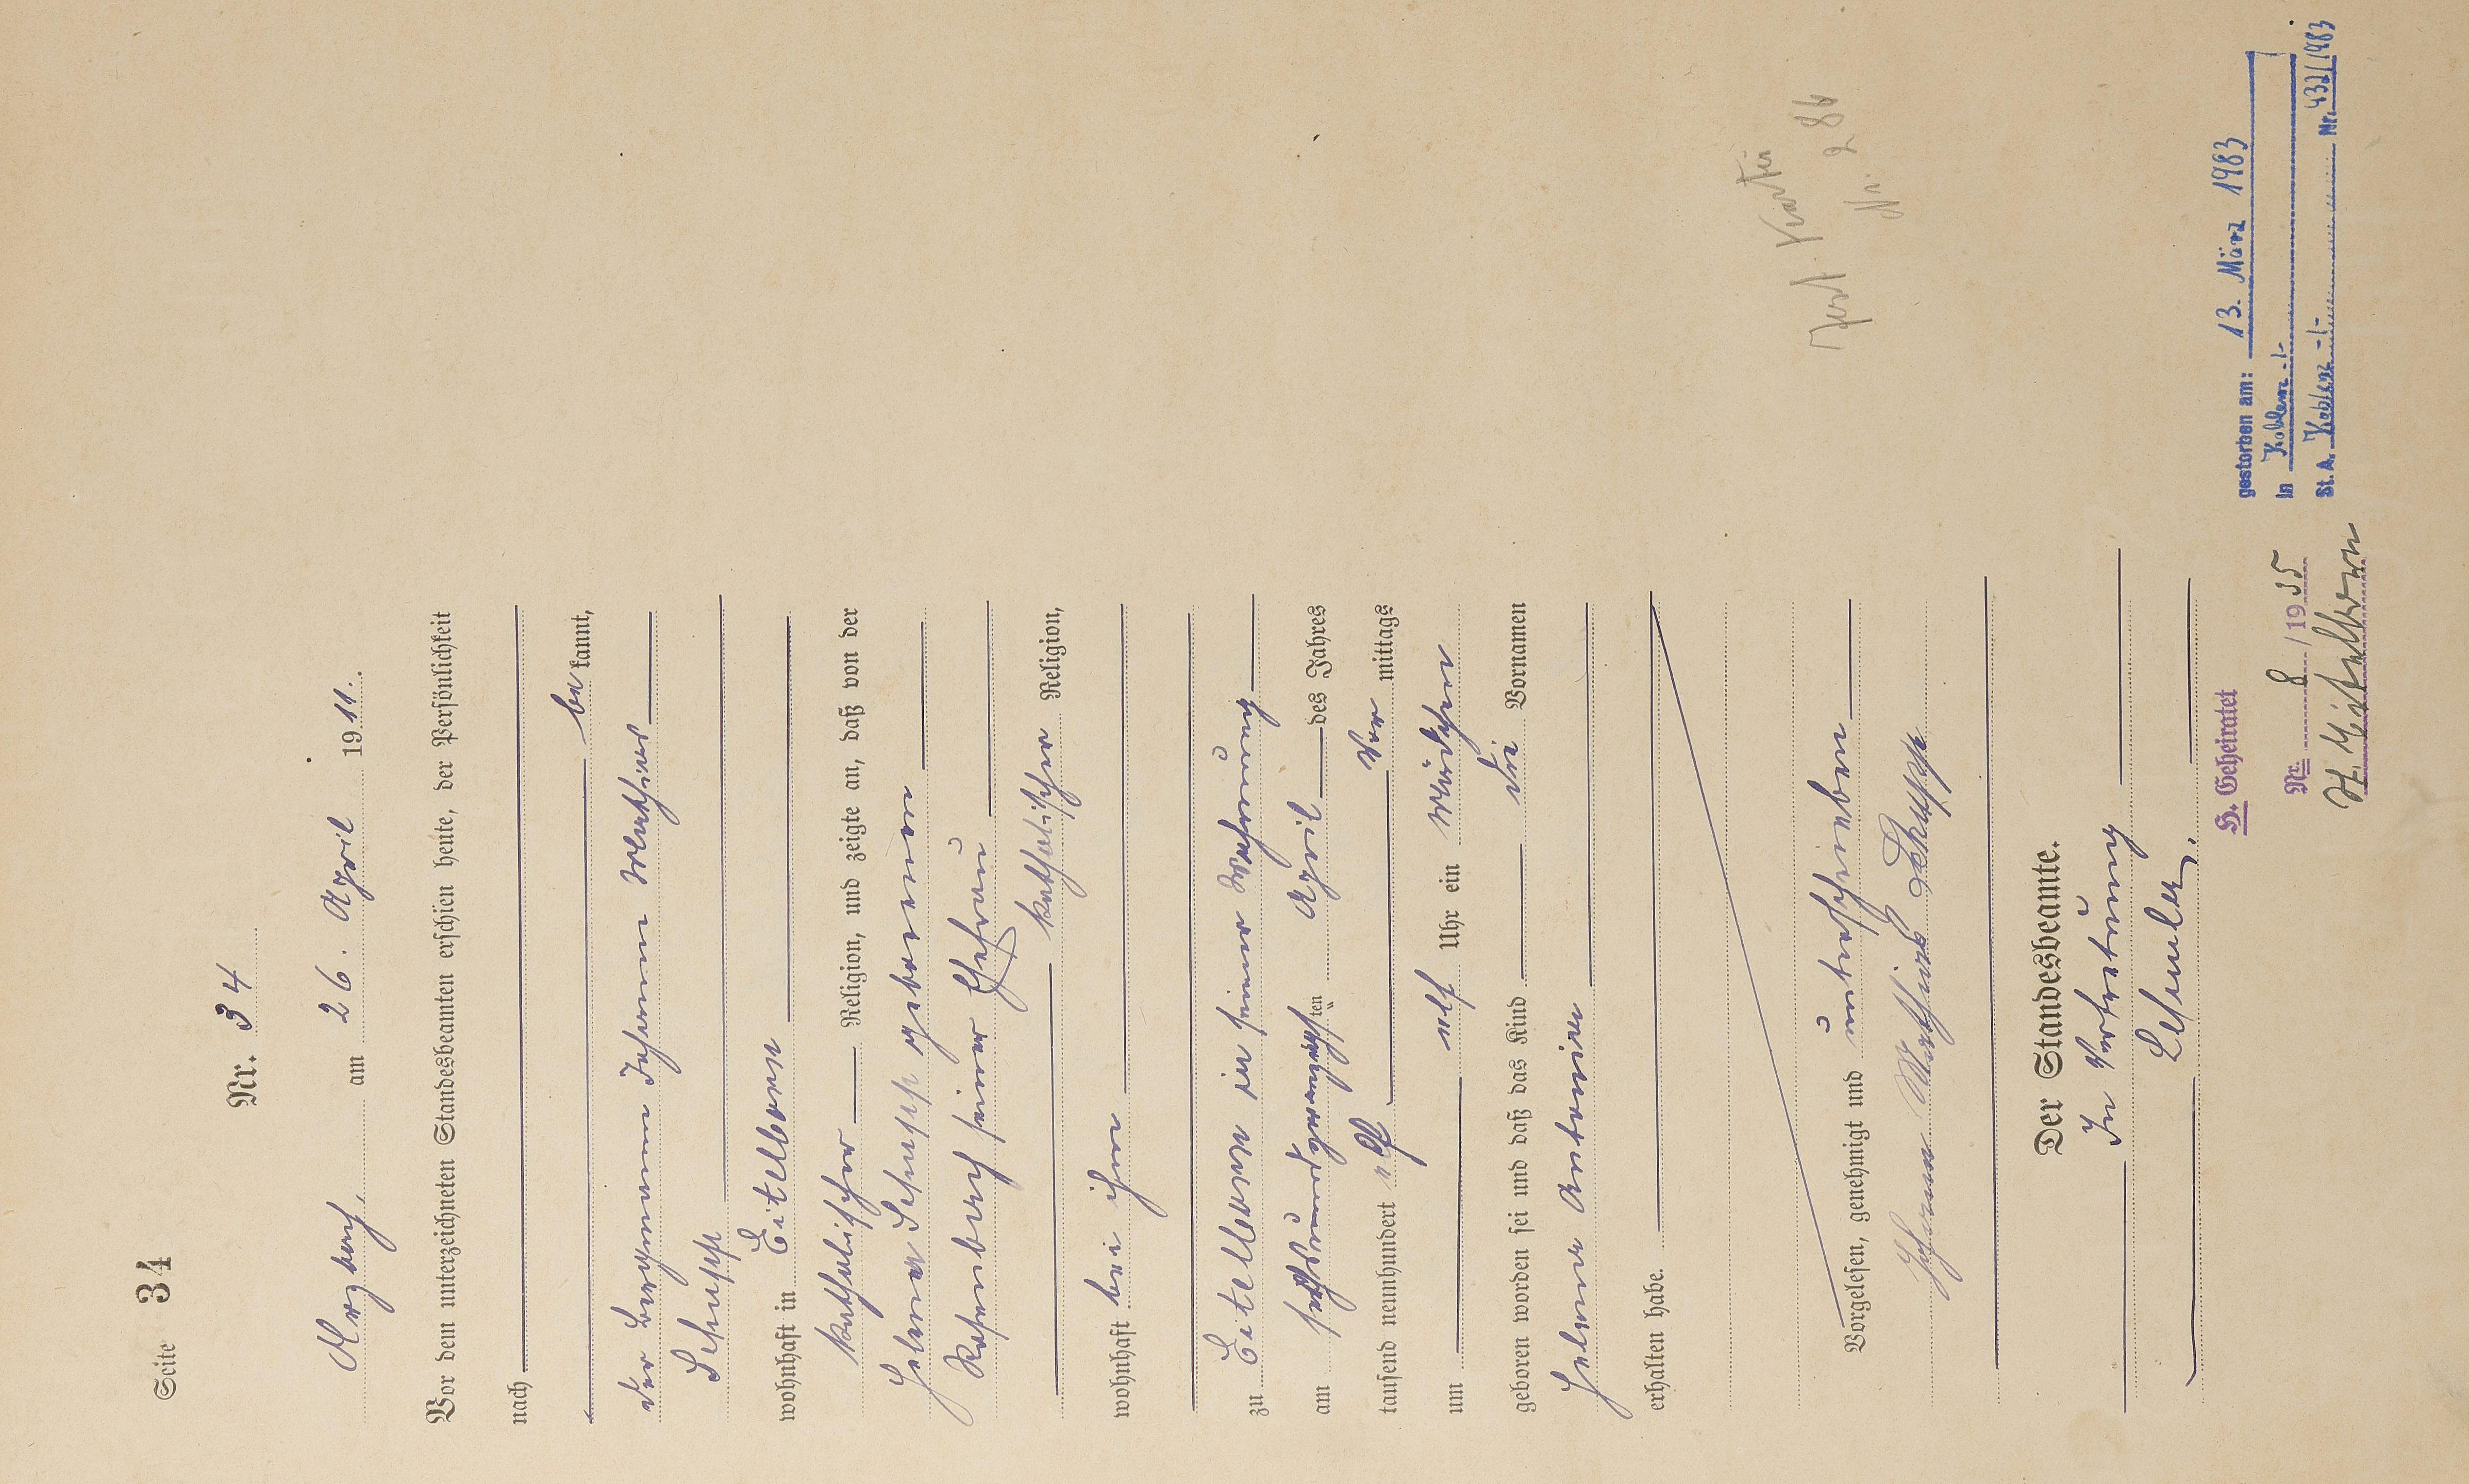 Seite 34
Nr. 34
Arzbach, am 26. April 1911.
Vor dem unterzeichneten Standesbeamten erschien heute, der Persönlichkeit
nach
be kannt,
der Bergmann Johann Mathias
Schupp
wohnhaft in Eitelborn
katholischer Religion, und zeigte an, daß von der
Helena Schupp geborenen
seiner Ehefrau
katholischer Religion,
wohnhaft bei ihm
zu Eitelborn in seiner Wohnung
am sechsundzwanzigsten April des Jahres
tausend neunhundert elf Vor mittags
um elf Uhr ein Mädchen
geboren worden sei und daß das Kind die Vornamen
Helena Antonia
erhalten habe.
Vorgelesen, genehmigt und unterschrieben
Johann Mathias Schupp
Der Standesbeamte.
In Vertretung
H. Geheiratet
Nr. 8 / 1935
St. Eitelborn
gestorben am: 13. März 1983
in Koblenz -1-
St. A. Koblenz -1- Nr. 432/1983
Nr. 286